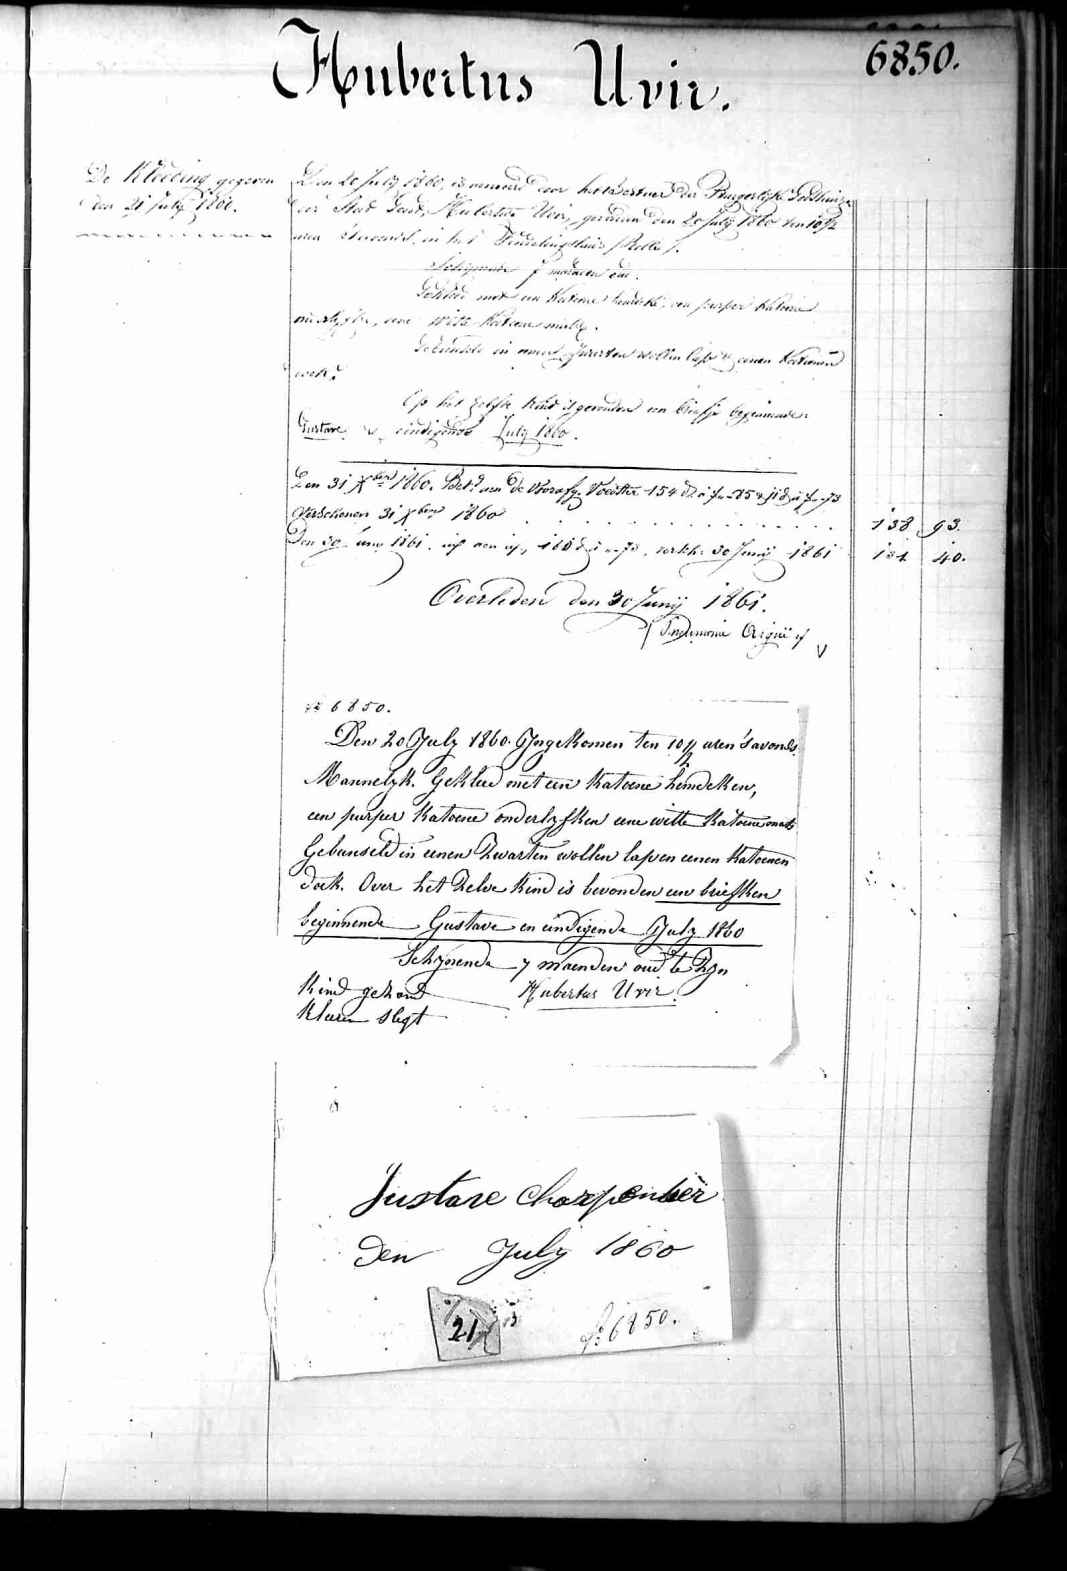 6850.
Hubertus Uvir.
De Kleeding gegeven
den 21 July 1860.
Den 20 July 1860, is door het bestuur der Burgerlyke Godshuizen
der Stad Gend, Hubertus Uvir, gevonden den 20 July 1860 ten 10 1/2
uren 's avonds in het Vondelinghuis (Rolle).
Schynende 7 maenden oud.
Gekleed met een Katoene hemdeke, een purper Katoene
onderlyfke, eene witte Katoene muts.
Gebunseld in eenen zwarten wollen lap & eenen Katoenen
doek.
Op het zelfde Kind is gevonden een briefje beginnende:
Gustave & eindigende July 1860.
Den 31 Xber 1860. Bet. aen de Voedster 154
Verschenen 31 Xber 1860 138 93.
Den 30 Juny 1861. 30 Juny 1861 131 40.
Overleden den 30 Junij 1861.
6850.
Den 20 July 1860. Ingekomen ten 10 1/2 uren 's avonds
Mannelyk. Gekleed met een Katoene hemdeken,
een purper Katoene onderlyfken eene witte Katoene muts
Gebunseld in eenen Zwarten wollen lap en eenen Katoenen
doek. Over het Zelve Kind is bevonden een briefken
beginnende Gustave en eindigende July 1860
Schynende 7 maenden oud te Zyn
Kind gezond Hubertus Uvir.
Kleeren slegt
Gustave Charpentier
den July 1860
21
6850.